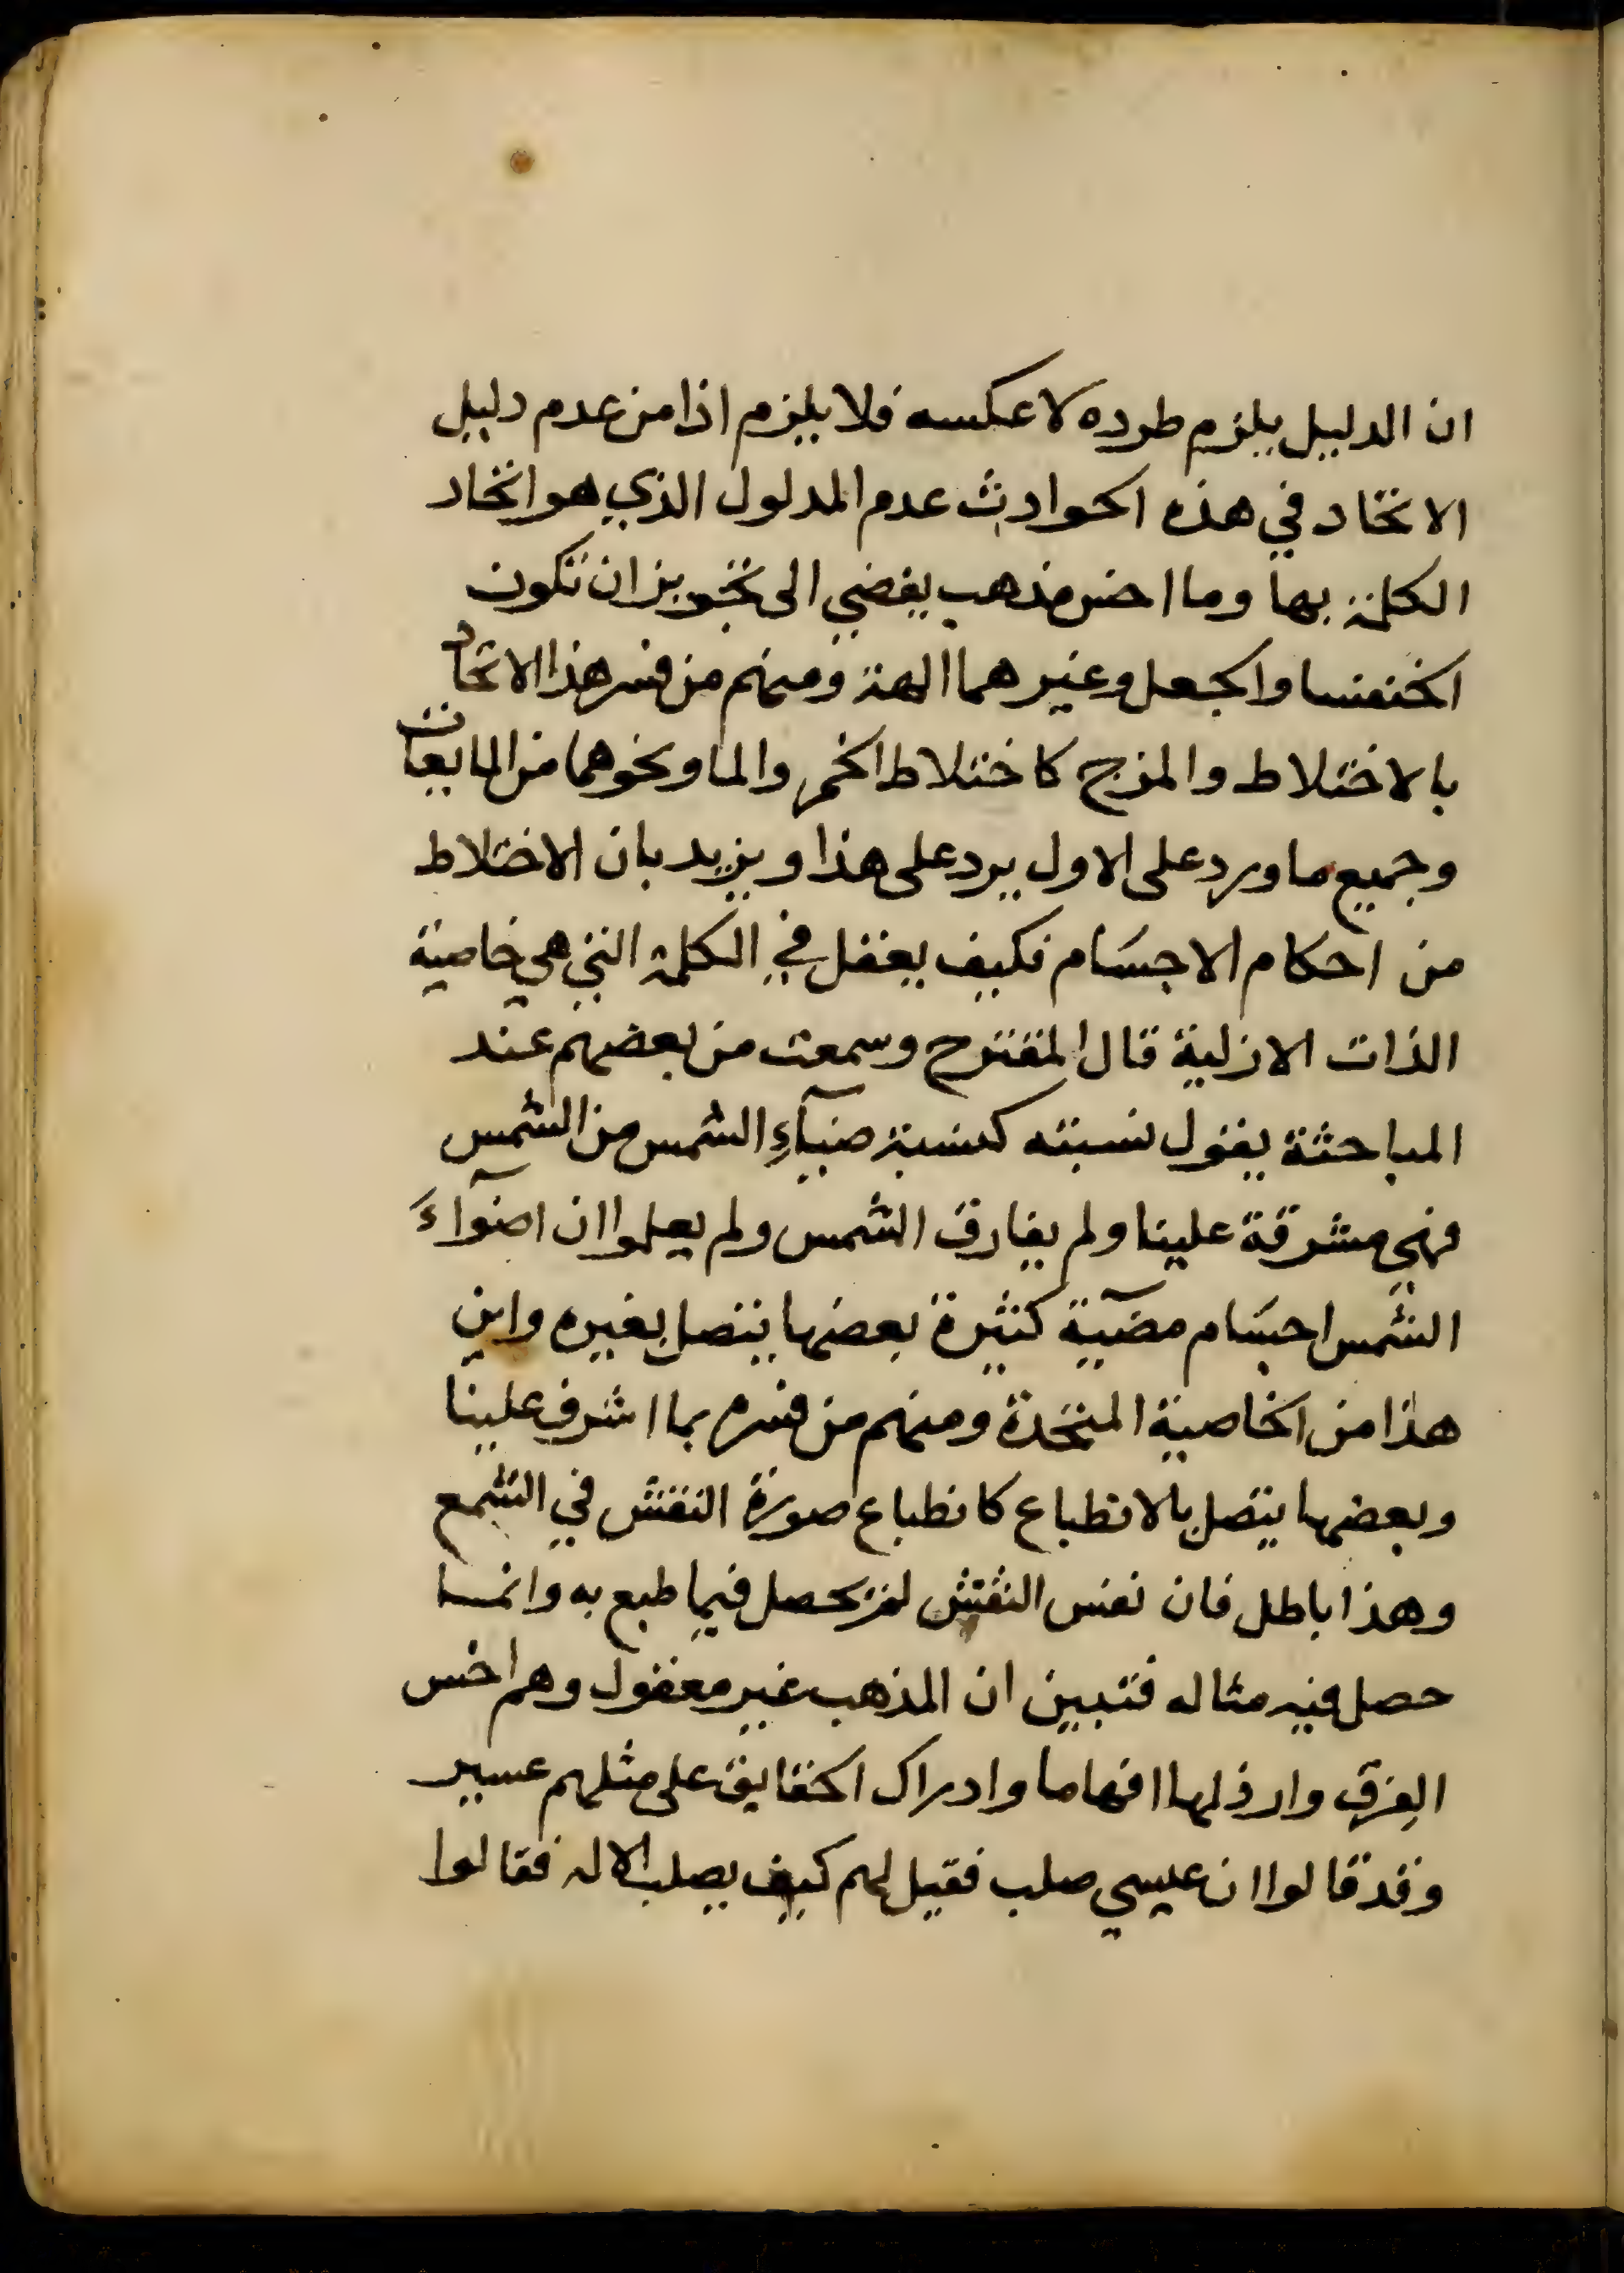 ان الدليل يلزم طرده لا عكسه فلا يلزم اذا من عدم دليل
الاتحاد في هذه الحوادث عدم المدلول الذي هو اتحاد
الكلمة بها وما اخس مذهب يفضي الى تجويز ان تكون
الخنفسا والجعل وغيرهما الهة ومنهم من فسر هذا الاتحاد
بالاختلاط والمزج كاختلاط الخمر والما ونحوهما من المايعات
وجميع ما ورد على الاول يرد على هذا ويزيد بان الاختلاط
من احكام الاجسام فكيف يعقل في الكلمة التي هي خاصية
الذات الازلية قال المقترح وسمعت من بعضهم عند
المباحثة يقول نسبته كنسبة ضيآءِ الشمس من الشمس
فهي مشرقة علينا ولم يفارق الشمس ولم يعلموا ان اضوآءَ
الشمس اجسام مضيّة كثيرة بعضها يتصل بغيره واين
هذا من الخاصية المتحدة ومنهم من فسره بما اشرق علينا
وبعضها يتصل بالانطباع كانطباع صورة النقش في الشمع
وهذا باطل فان نفس النقش لم يحصل فيما طبع به وانما
حصل فيه مثاله فتبين ان المذهب غير معقول وهم اخس
الفِرق وارذلها افهاما وادراك الحقايق على مثلهم عسير
وقد قالوا ان عيسي صلب فقيل لهم كيف يصلب الاله فقالوا